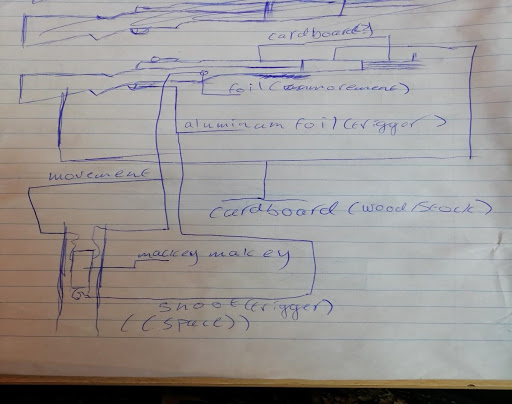 cardboard
foil (movement)
aluminum foil (trigger)
movement
cardboard (wood/stock)
mackey makey
shoot (trigger)
((space))